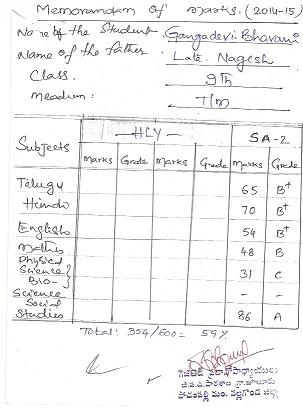 Memorandum of marks. (2014-15)
No re of the Student. Gangadevi. Bhavani
Name of the father. Late. Nagesh
Class. 9th
Meadium: T/m
Subjects HLY SA-2
Marks Grade Marks Grade Marks Grade
Telugu 65 B+
Hindo 70 B+
English 54 B+
Maths 48 B
Physical
Science } 31 C
Bio- }
Science - -
Social
Studies 86 A
Total: 354/600 = 59%
గెజిటెడ్ ప్రధానోపాధ్యాయులు